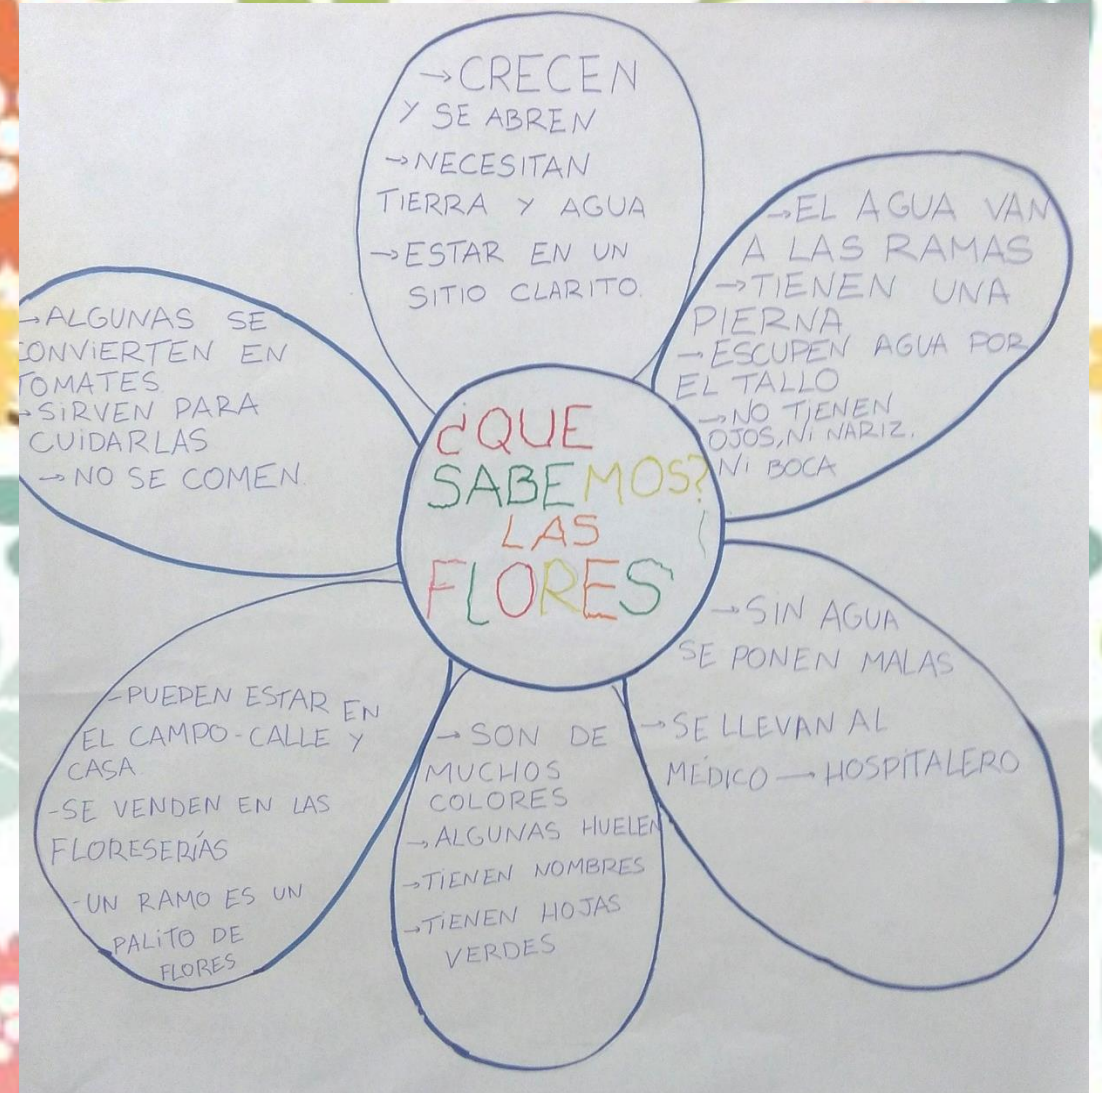 ¿QUE
SABEMOS?
LAS
FLORES
→CRECEN
Y SE ABREN
→NECESITAN
TIERRA Y AGUA
→ESTAR EN UN
SITIO CLARITO.
→EL AGUA VAN
A LAS RAMAS
→TIENEN UNA
PIERNA
→ESCUPEN AGUA POR
EL TALLO
→NO TIENEN
OJOS, NI NARIZ.
NI BOCA
→SIN AGUA
SE PONEN MALAS
→SE LLEVAN AL
MÉDICO → HOSPITALERO
→SON DE
MUCHOS
COLORES
→ALGUNAS HUELEN
→TIENEN NOMBRES
→TIENEN HOJAS
VERDES
-PUEDEN ESTAR EN
EL CAMPO-CALLE Y
CASA
-SE VENDEN EN LAS
FLORESERÍAS
-UN RAMO ES UN
PALITO DE
FLORES
→ALGUNAS SE
CONVIERTEN EN
TOMATES.
→SIRVEN PARA
CUIDARLAS
→NO SE COMEN.